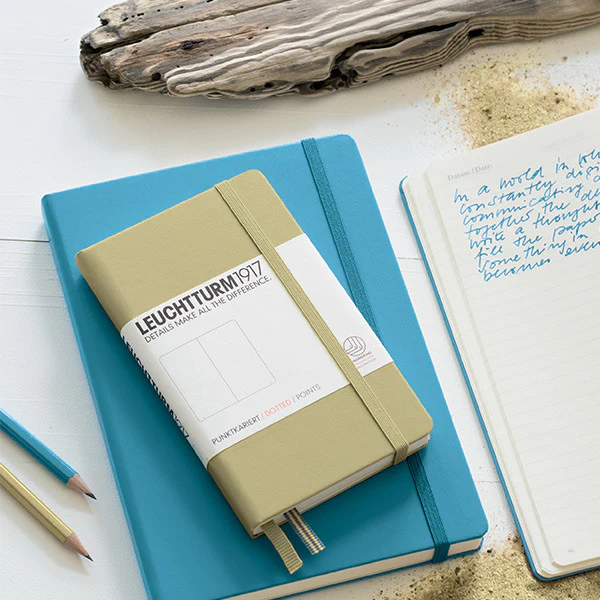 LEUCHTTURM1917
DETAILS MAKE ALL THE DIFFERENCE.
PUNKTKARIERT / DOTTED / POINTS
LEUCHTTURM1917
Datum / Date:
In a world in
constantly
communicating
together the
write a thought
fill the paper
something in
becomes